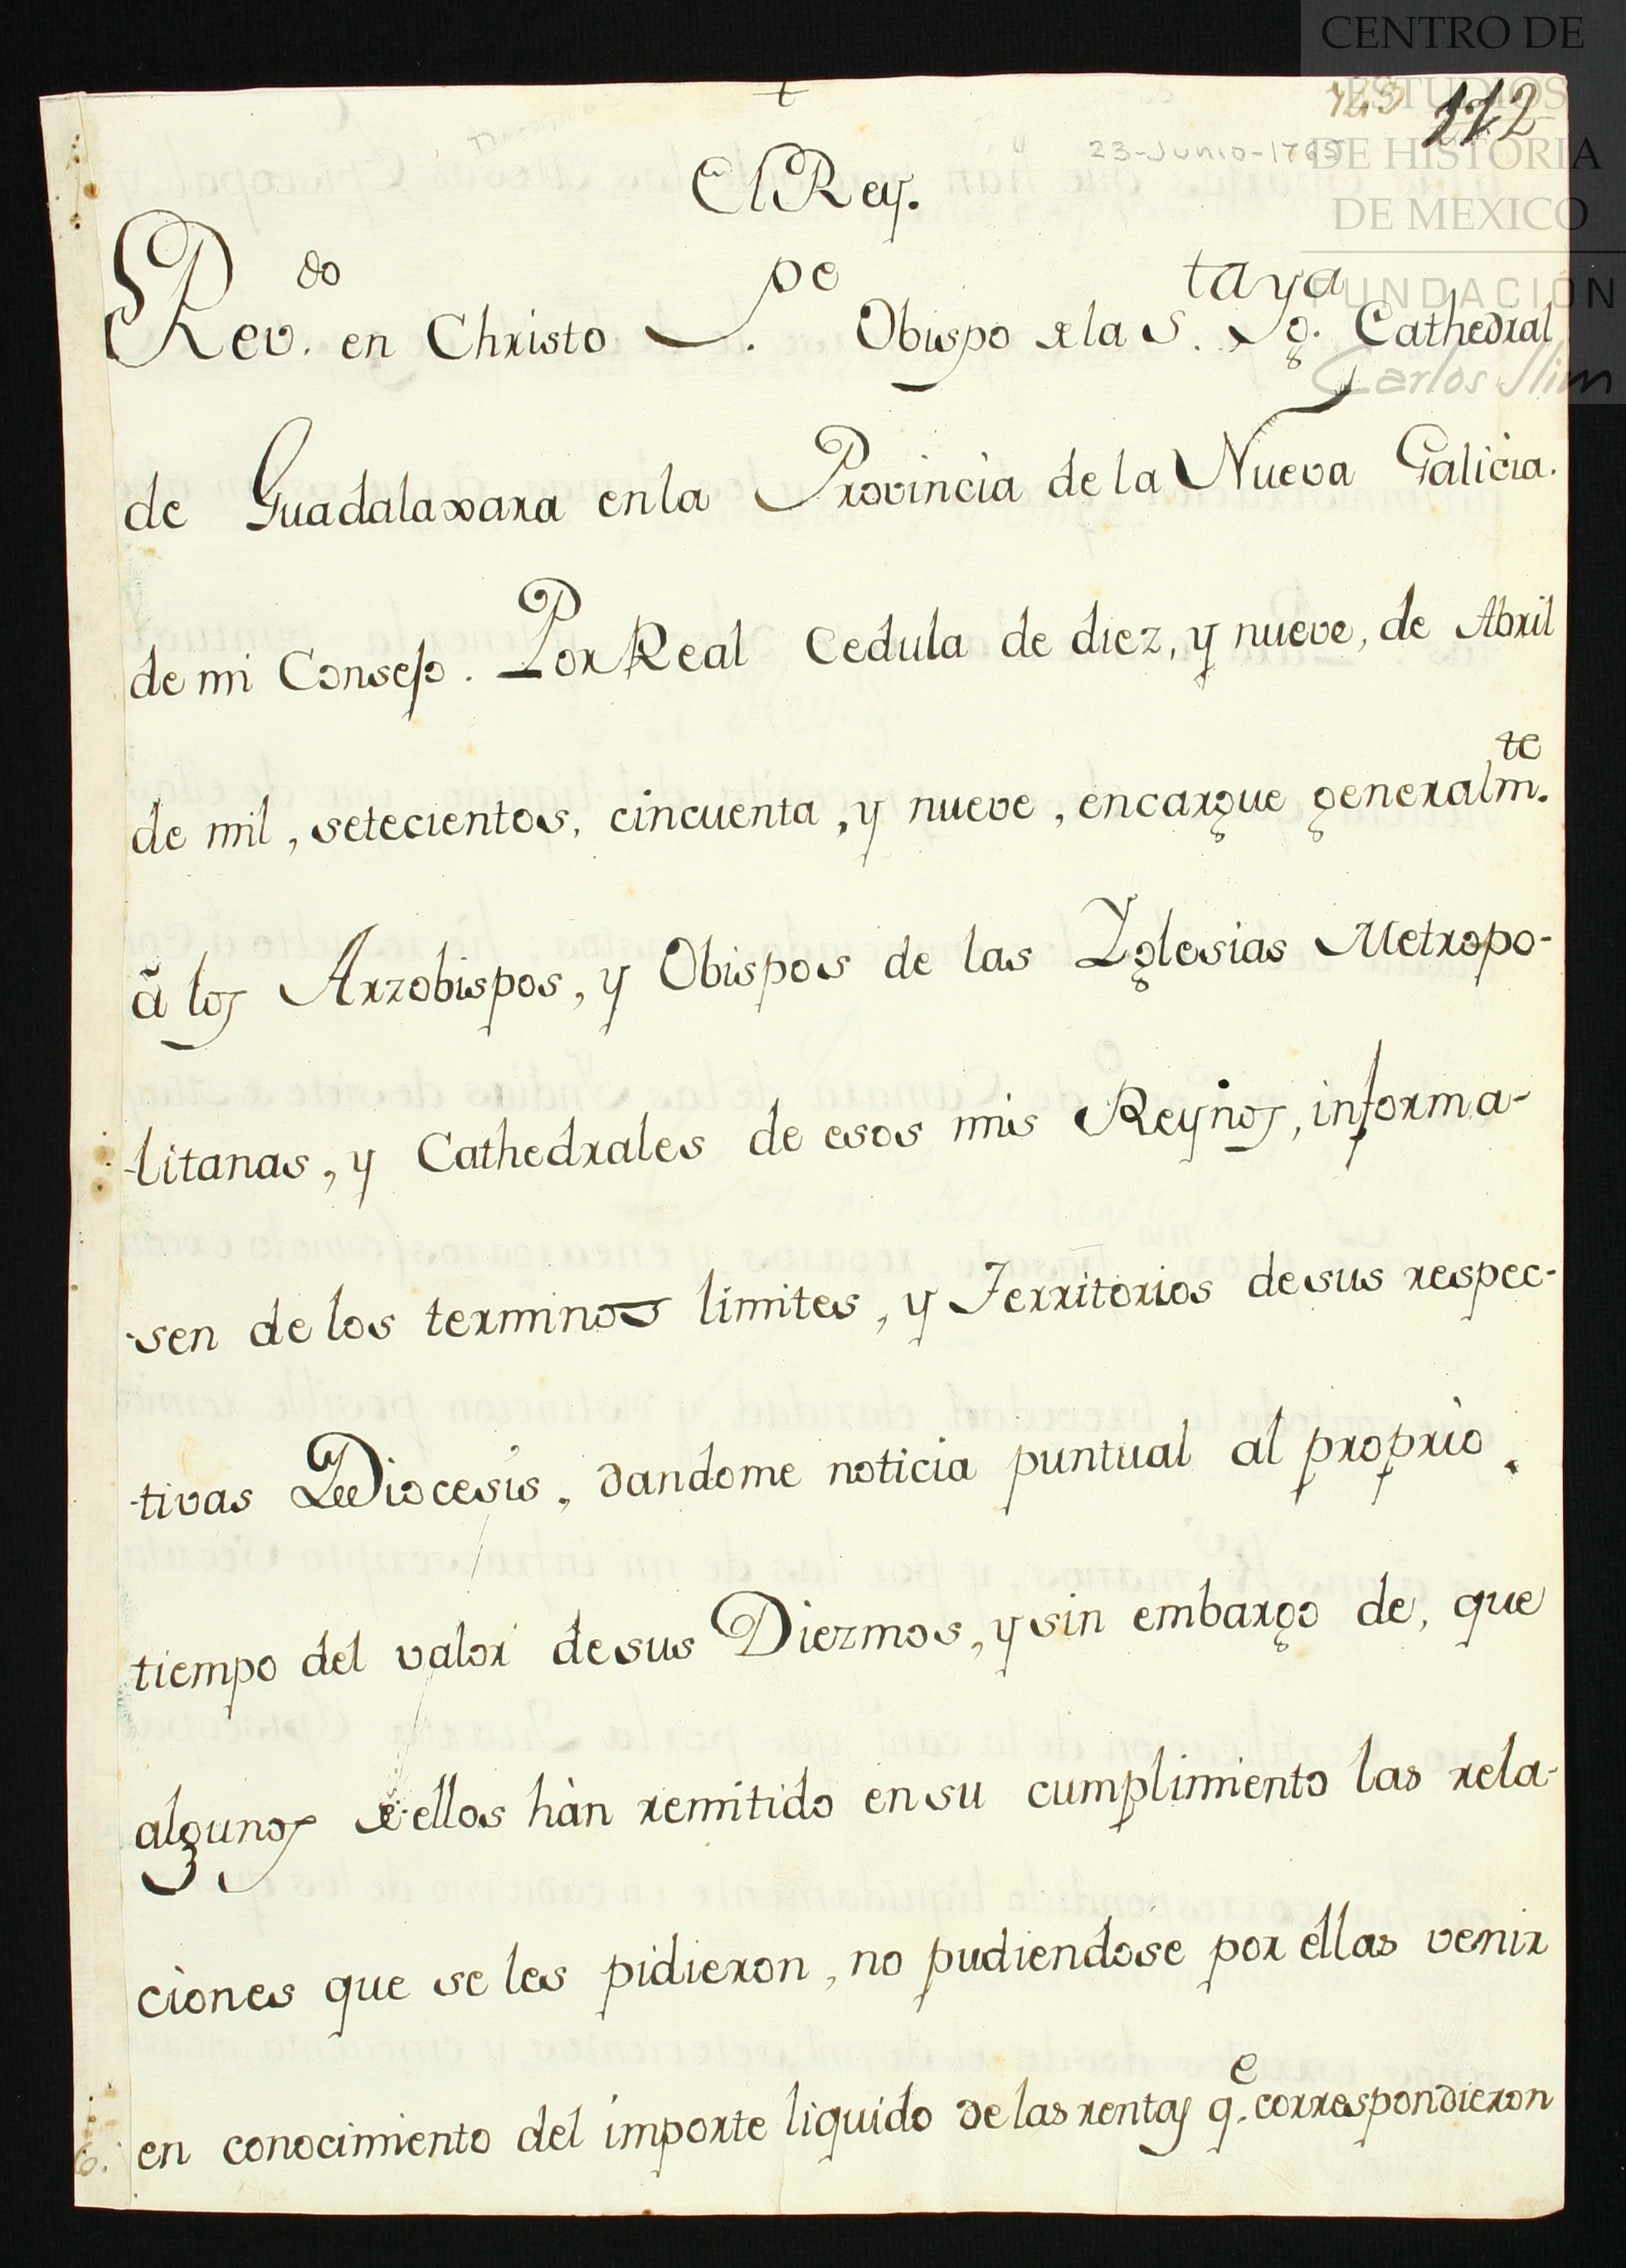 CENTRO DE
ESTUDIOS
DE HISTORIA
DE MEXICO
FUNDACIÓN
Carlos Slim
112
23-Junio-1765
El Rey.
Rev.do en Christo P.e Obispo de la S.ta Yg.a Cathedral
de Guadalaxara en la Provincia de la Nueva Galicia.
de mi Consejo. Por Real Cedula de diez, y nueve, de Abril
de mil, setecientos, cincuenta, y nueve, encargue generalm.te
â los Arzobispos, y Obispos de las Yglesias Metropo-
-litanas, y Cathedrales de esos mis Reynos, informa-
-sen de los terminos limites, y Territorios de sus respec-
-tivas Diocesis, dandome noticia puntual al proprio
tiempo del valor de sus Diezmos, y sin embargo de, que
algunos de ellos hàn remitido en su cumplimiento las rela-
ciones que se les pidieron, no pudiendose por ellas venir
en conocimiento del importe liquido de las rentas q.e correspondieron